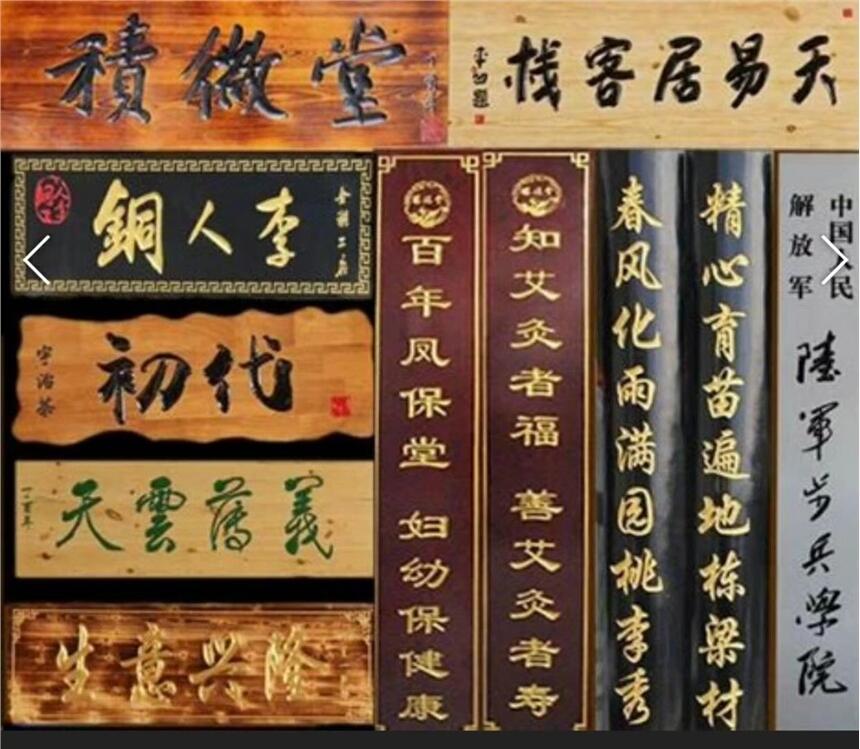 積微堂
天易居客栈
銅人李
宇治茶
初代
義薄雲天
丁酉年
生意兴隆
知艾灸者福 善艾灸者寿
百年凤保堂 妇幼保健康
精心育苗遍地栋梁材
春风化雨满园桃李秀
中国人民
解放军
陸軍步兵學院